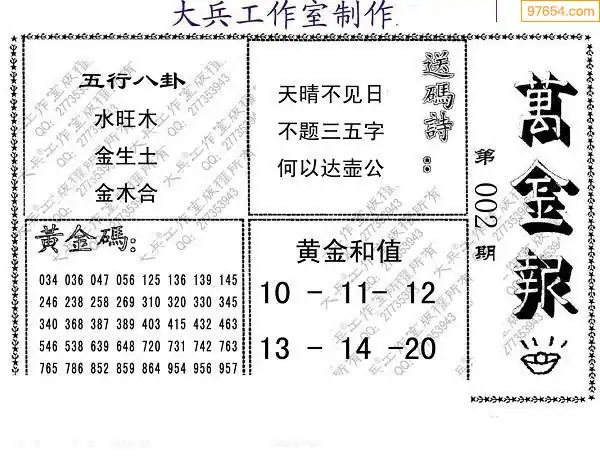 大兵工作室制作
97654.com
五行八卦
水旺木
金生土
金木合
送碼詩：
天晴不见日
不题三五字
何以达壶公
萬金報
第002期
黄金碼：
034 036 047 056 125 136 139 145
246 238 258 269 310 320 330 345
340 368 387 389 403 415 432 463
546 538 639 648 720 731 742 763
765 786 852 859 864 954 956 957
黄金和值
10 - 11- 12
13 - 14 -20
大兵工作室版權所有
QQ: 277353943